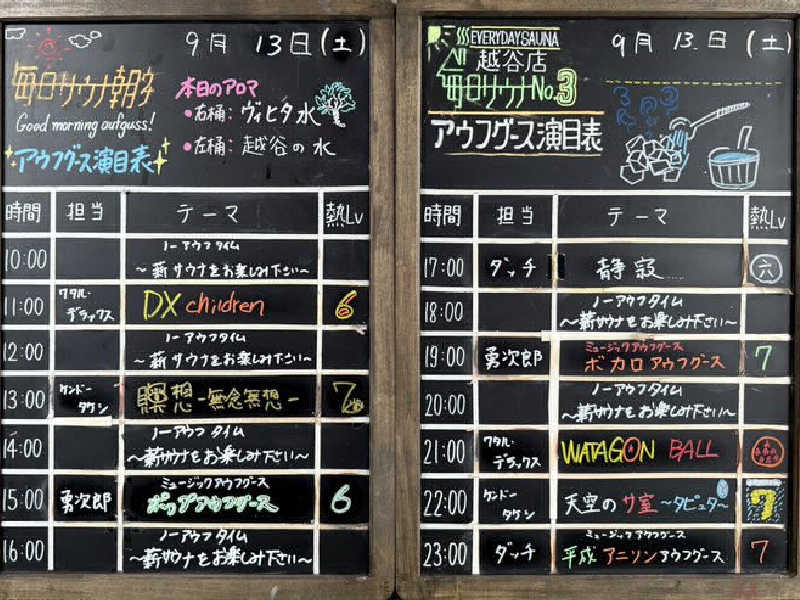 9月 13日(土)
毎日サウナ朝
Good morning aufguss!
アウフグース演目表
本日のアロマ
•右桶: ヴィヒタ水
•左桶: 越谷の水
時間 担当 テーマ 熱Lv
10:00 ノーアウフタイム
〜薪サウナをお楽しみ下さい〜
11:00 ワタル・デラックス DX children 6
12:00 ノーアウフタイム
〜薪サウナをお楽しみ下さい〜
13:00 ケンドータケシ 瞑想-無念無想- 7
14:00 ノーアウフタイム
〜薪サウナをお楽しみ下さい〜
15:00 勇次郎 ミュージックアウフグース
ポップアウフグース 6
16:00 ノーアウフタイム
〜薪サウナをお楽しみ下さい〜
EVERYDAY SAUNA 9月 13日(土)
越谷店
毎日サウナNo.3
アウフグース演目表
時間 担当 テーマ 熱Lv
17:00 ダッチ 静寂...... 六
18:00 ノーアウフタイム
〜薪サウナをお楽しみ下さい〜
19:00 勇次郎 ミュージックアウフグース
ボカロアウフグース 7
20:00 ノーアウフタイム
〜薪サウナをお楽しみ下さい〜
21:00 ワタル・デラックス WATAGON BALL
22:00 ケンドータケシ 天空のサ室〜タピュタ〜 7
23:00 ダッチ ミュージックアウフグース
平成アニソンアウフグース 7